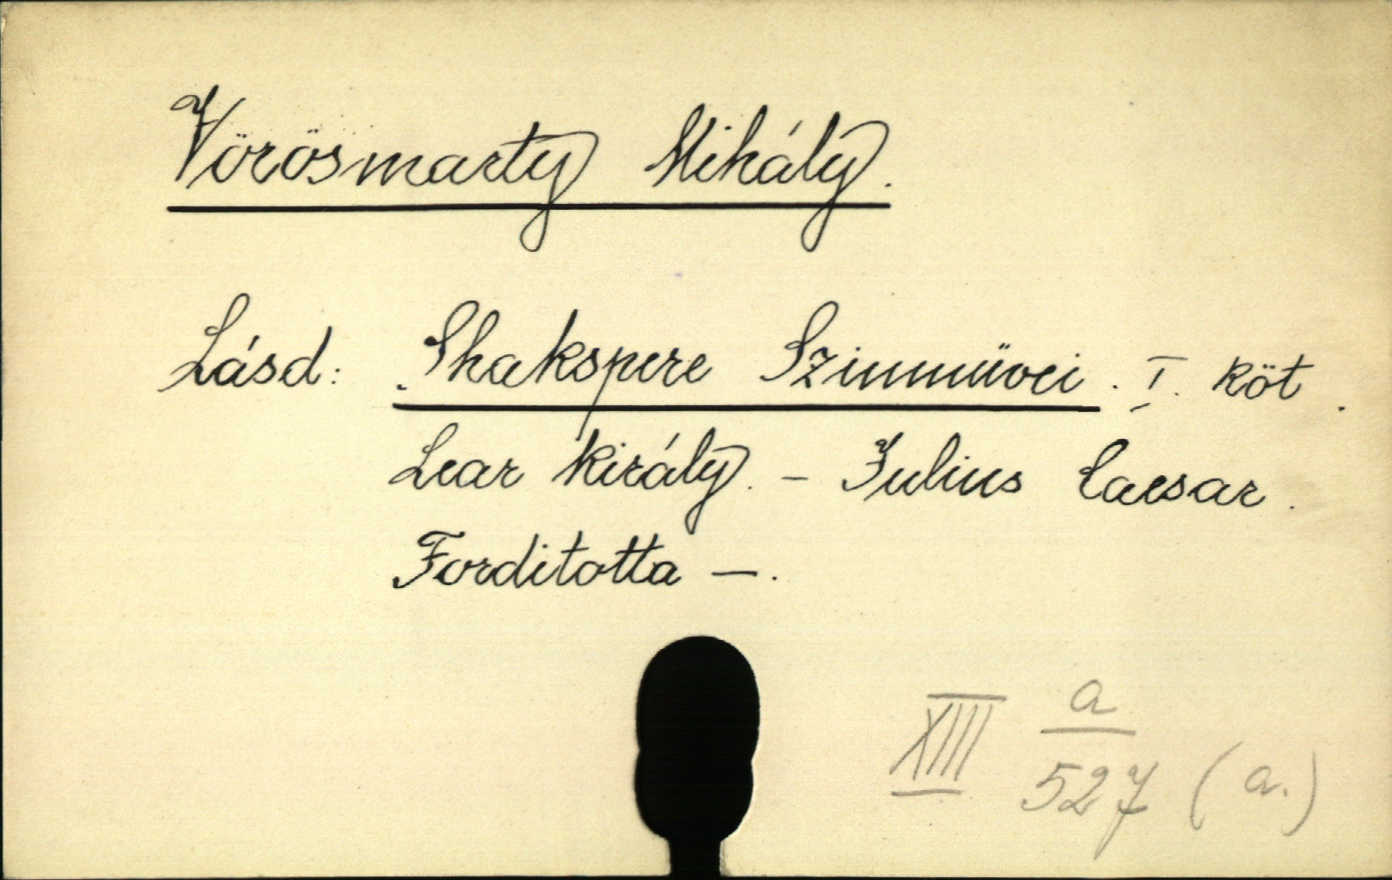 Vörösmarty Mihály.
Lásd: Shakspere Szinmüvei. I. köt.
Lear király. - Julius Caesar.
Forditotta -.
XIII a/527 (a.)